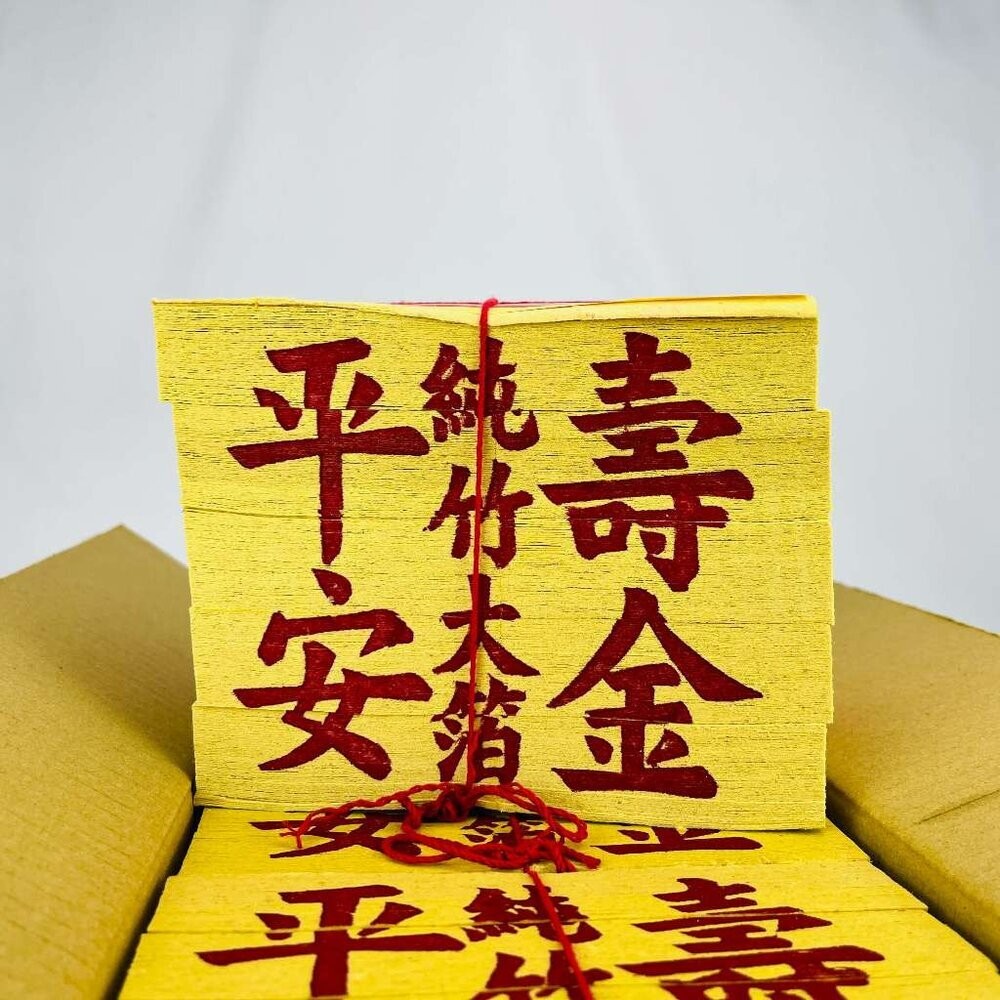 壽金
純竹大箔
平安
安
金
壽
純竹
平